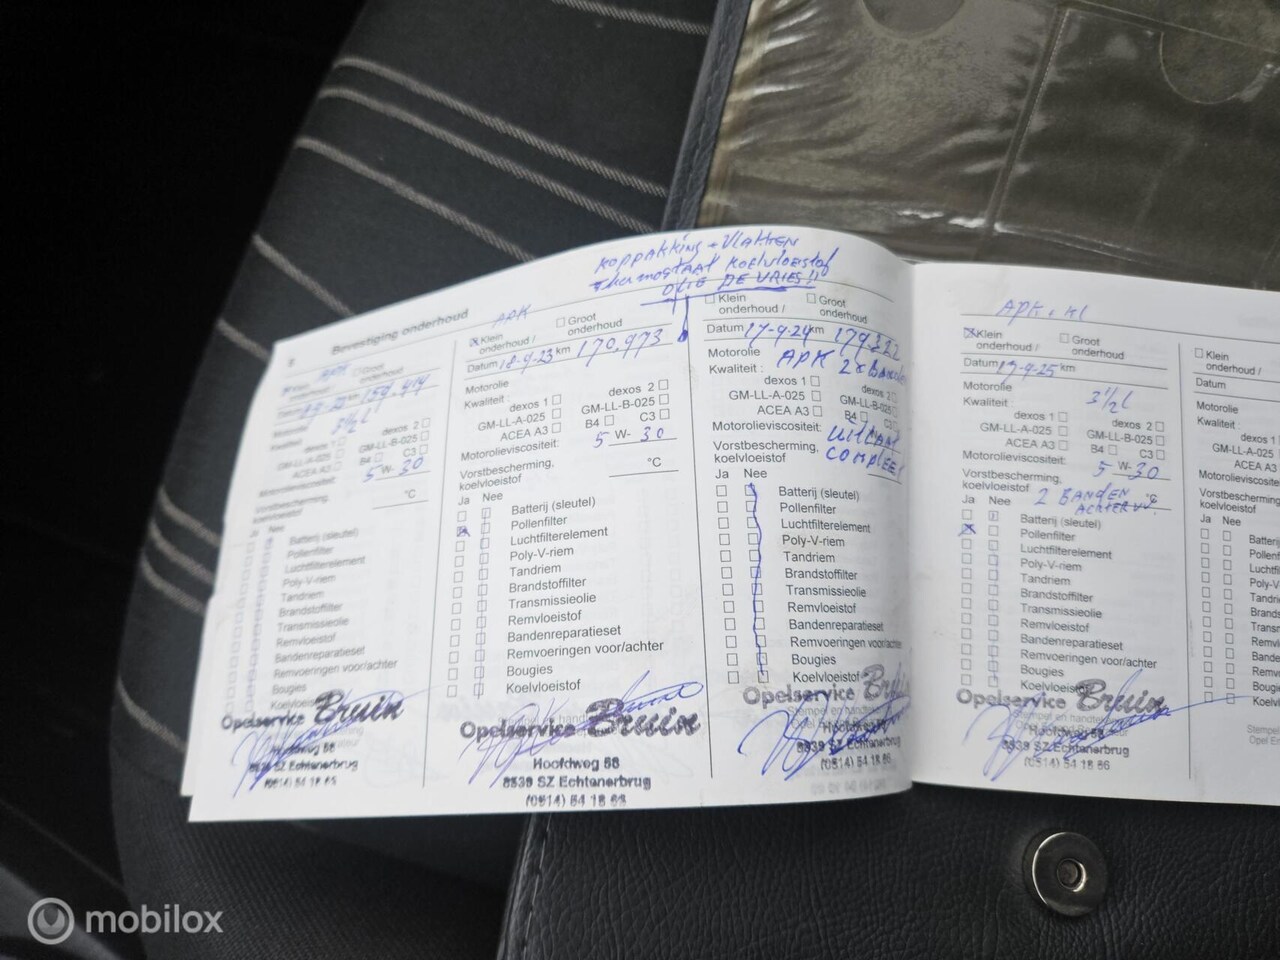 koppakking + vlakken
thermostaat koelvloeistof
olie DE VRIES!!
8 Bevestiging onderhoud
APK
Klein onderhoud /
Groot onderhoud
Datum km 159.414
Motorolie 3½ l
Kwaliteit :
dexos 1
dexos 2
GM-LL-A-025
GM-LL-B-025
ACEA A3
B4
C3
Motorolieviscositeit: 5 W- 30
Vorstbescherming, koelvloeistof
°C
Ja Nee
Batterij (sleutel)
Pollenfilter
Luchtfilterelement
Poly-V-riem
Tandriem
Brandstoffilter
Transmissieolie
Remvloeistof
Bandenreparatieset
Remvoeringen voor/achter
Bougies
Koelvloeistof
Opelservice Bruin
Hoofdweg 58
8539 SZ Echtenerbrug
APK
Klein
onderhoud /
Groot
onderhoud
Datum 18-9-23 km 170.973
Motorolie
Kwaliteit :
dexos 1
dexos 2
GM-LL-A-025
GM-LL-B-025
ACEA A3
B4
C3
Motorolieviscositeit: 5 W- 30
Vorstbescherming,
koelvloeistof
°C
Ja Nee
Batterij (sleutel)
Pollenfilter
Luchtfilterelement
Poly-V-riem
Tandriem
Brandstoffilter
Transmissieolie
Remvloeistof
Bandenreparatieset
Remvoeringen voor/achter
Bougies
Koelvloeistof
Opelservice Bruin
Hoofdweg 58
8539 SZ Echtenerbrug
Klein
onderhoud /
Groot
onderhoud
Datum 17-9-24 km 179.322
Motorolie APK 2x Banden
Kwaliteit :
dexos 1
dexos 2
GM-LL-A-025
GM-LL-B-025
ACEA A3
B4
C3
Motorolieviscositeit: uitlaat
Vorstbescherming, compleet
koelvloeistof
Ja Nee
Batterij (sleutel)
Pollenfilter
Luchtfilterelement
Poly-V-riem
Tandriem
Brandstoffilter
Transmissieolie
Remvloeistof
Bandenreparatieset
Remvoeringen voor/achter
Bougies
Koelvloeistof
Opelservice Bruin
Hoofdweg 58
8539 SZ Echtenerbrug
APK + Kl
Klein
onderhoud /
Groot
onderhoud
Datum 17-9-25 km
Motorolie 3½ l
Kwaliteit :
dexos 1
dexos 2
GM-LL-A-025
GM-LL-B-025
ACEA A3
B4
C3
Motorolieviscositeit: 5 W- 30
Vorstbescherming,
koelvloeistof 2 BANDEN °C
Ja Nee ACHTER
Batterij (sleutel)
Pollenfilter
Luchtfilterelement
Poly-V-riem
Tandriem
Brandstoffilter
Transmissieolie
Remvloeistof
Bandenreparatieset
Remvoeringen voor/achter
Bougies
Koelvloeistof
Opelservice Bruin
Hoofdweg 58
8539 SZ Echtenerbrug
Klein
onderhoud /
Datum
Motorolie
Kwaliteit :
dexos 1
GM-LL-A-025
ACEA A3
Motorolieviscositeit
Vorstbescherming
koelvloeistof
Ja Nee
mobilox